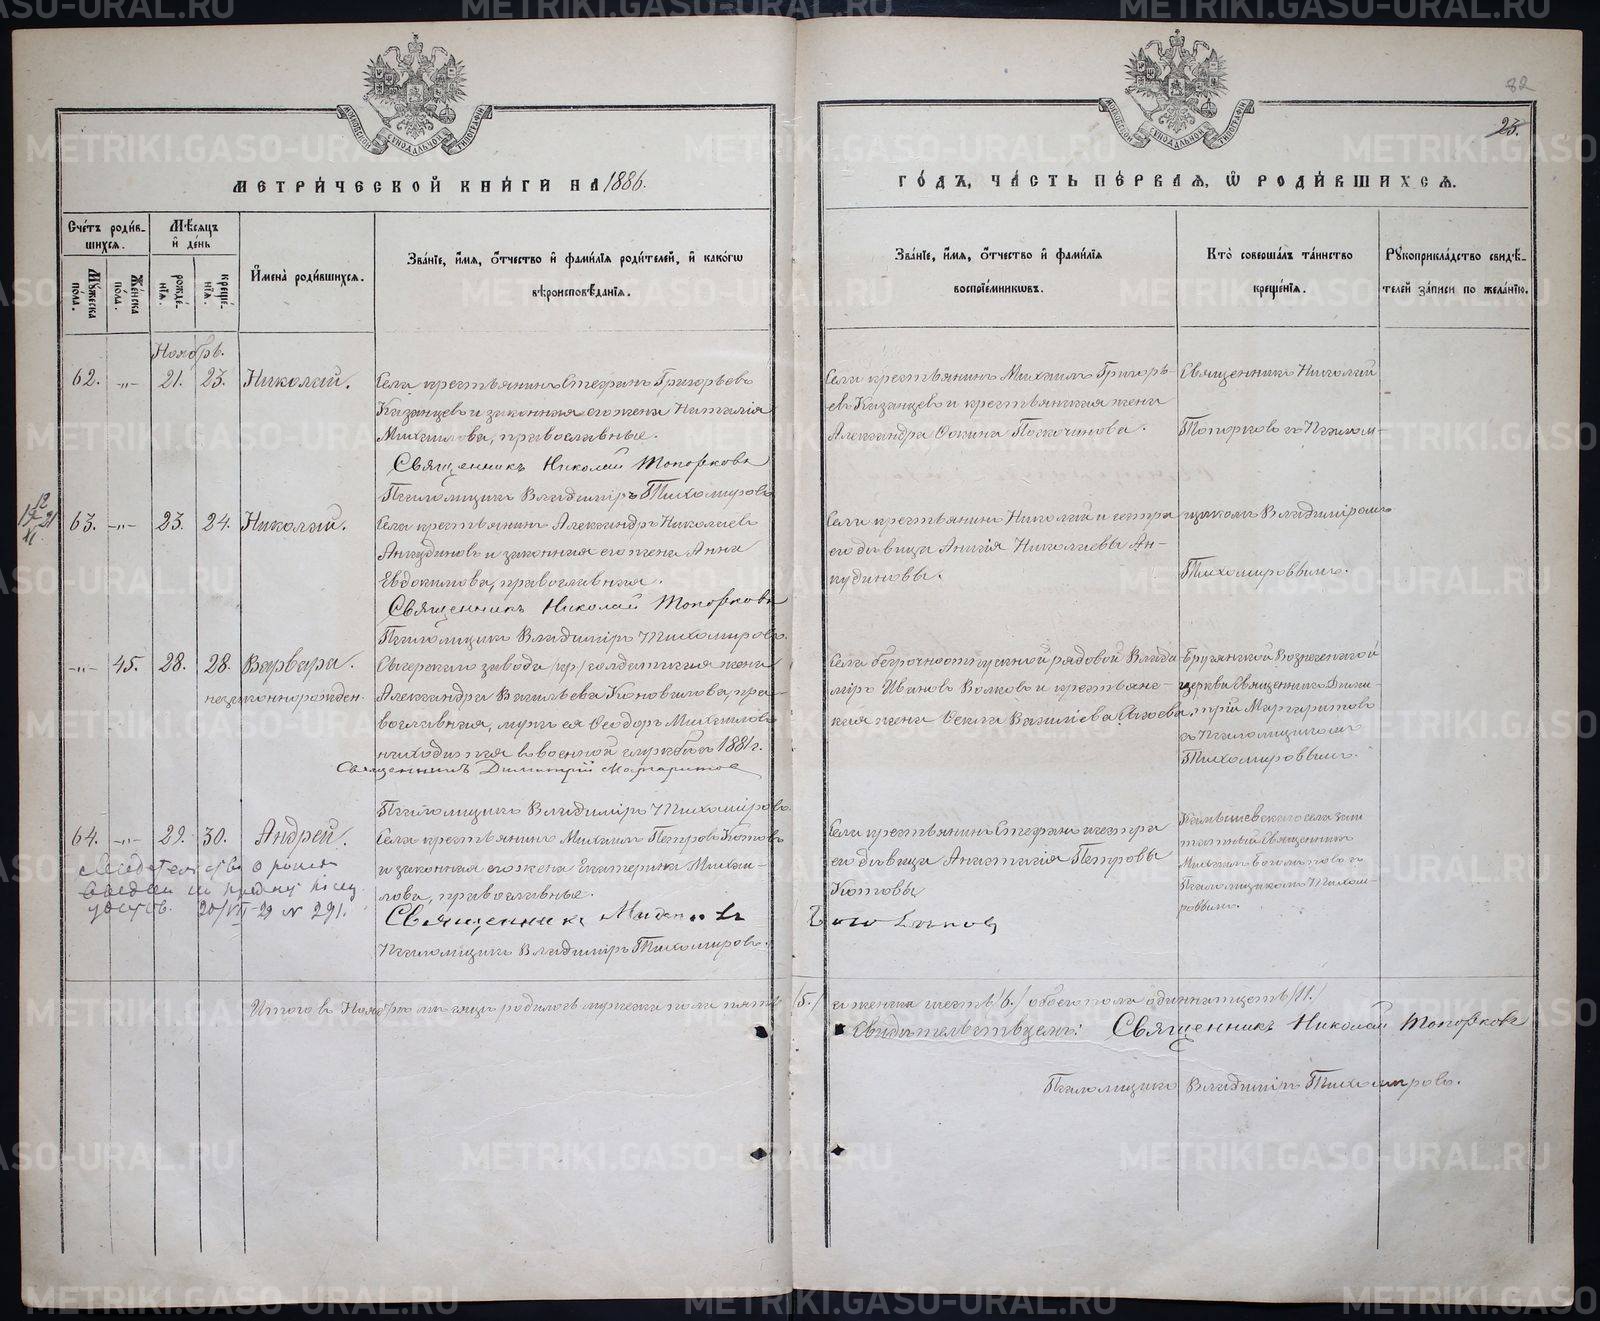 82
23.
МОСКОВСКОЙ СѴНОДАЛЬНОЙ ТИПОГРАФІИ
МОСКОВСКОЙ СѴНОДАЛЬНОЙ ТИПОГРАФІИ
МЕТРИ́ЧЕСКОЙ КНИ́ГИ НА 1886.
ГО́ДЪ, ЧА́СТЬ ПЕ́РВАЯ, Ѽ РОДИ́ВШИХСЯ.
Сче́тъ роди́в-
шихся.
Мꙋжеска
по́ла.
Же́нска
по́ла.
Мѣ́сяцъ
и҆ де́нь
рожде́-
нїя.
креще́-
нїя.
И҆мена̀ роди́вшихся.
Зва́нїе, и҆́мя, ѻ҆́тчество и҆ фами́лїя роди́телей, и҆ како́гѡ
вѣроисповѣ́данїя.
Зва́нїе, и҆́мя, ѻ҆́тчество и҆ фами́лїя
воспрїе́мниковъ.
Кто̀ соверша́лъ та́инство
креще́нїя.
Рꙋкоприкла́дство свидѣ́-
телей за́писи по жела́нїю.
Ноябрь.
62. -„- 21. 23. Николай.
Села крестьянинъ Стефанъ Григорьевъ
Казанцевъ и законная его жена Наталія
Михаилова, православные.
Священникъ Николай Топорковъ
Псаломщикъ Владиміръ Тихомировъ
Села крестьянинъ Михаилъ Григорь-
евъ Казанцевъ и крестьянская жена
Александра Фокина
Священникъ Николай
Топорковъ съ Псалом-
63. -„- 23. 24. Николай.
Села крестьянинъ Александръ Николаевъ
Анкудиновъ и законная его жена Анна
Евдокимова, православная.
Священникъ Николай Топорковъ
Псаломщикъ Владиміръ Тихомировъ.
Села крестьянинъ Николай и сестра
его дѣвица Николаевы Ан-
кудиновы.
щикомъ Владиміромъ
Тихомировымъ.
-„- 45. 28. 28. Варвара.
незаконнорожден.
Сысертскаго завода солдатская жена
Александра Васильева Коновалова, пра-
вославная, мужъ ея Ѳеодоръ Михаиловъ
находится въ военной службѣ съ 1881 г.
Священникъ Димитрій Маргаритовъ
Псаломщикъ Владиміръ Тихомировъ.
Села безсрочноотпускной рядовой Влади
міръ Ивановъ Волковъ и крестьянс-
кая жена Ѳекла Василіева
Вознесенской
церкви Священникъ Дими-
трій Маргаритовъ
съ Псаломщикомъ
Тихомировымъ.
64. -„- 29. 30. Андрей.
20/VII-29 № 291.
Села крестьянинъ Михаилъ Петровъ Котовъ
и законная его жена Екатерина Михаи-
лова, православные.
Священникъ
Псаломщикъ Владиміръ Тихомировъ.
Села крестьянинъ Стефанъ и сестра
его дѣвица Анастасія Петровы
Котовы
Камышевскаго села
Священникъ
Михаилъ съ
Псаломщикомъ Тихом-
ровымъ.
Итого въ Ноябрѣ мѣсяцѣ родилось мужеска пола пять /5./ и женска шесть /6./ обоего пола одиннадцать /11./
Свидѣтельствуемъ: Священникъ Николай Топорковъ
Псаломщикъ Владиміръ Тихомировъ.
METRIKI.GASO-URAL.RU